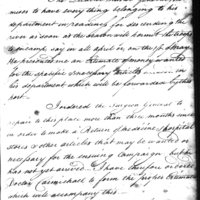 mence to have every thing belonging to his
department in readiness for descending the
river as soon as the season will permit the troops
encamp, say in all april or on the 1st of May
He presented me an Estimate of money wanted
for the specific & necessary articles in
his department which will be forwarded by the
post.
I ordered the Surgeon General to
repair to this place more than three months since
in order to make a Return of Medicine, Hospital
stores & other articles that may be wanted or
necessary for the ensuing Campaign but he
has not yet arrived. I have therefore ordered
Doctor Carmichael to form the proper Estimate
which will accompany this